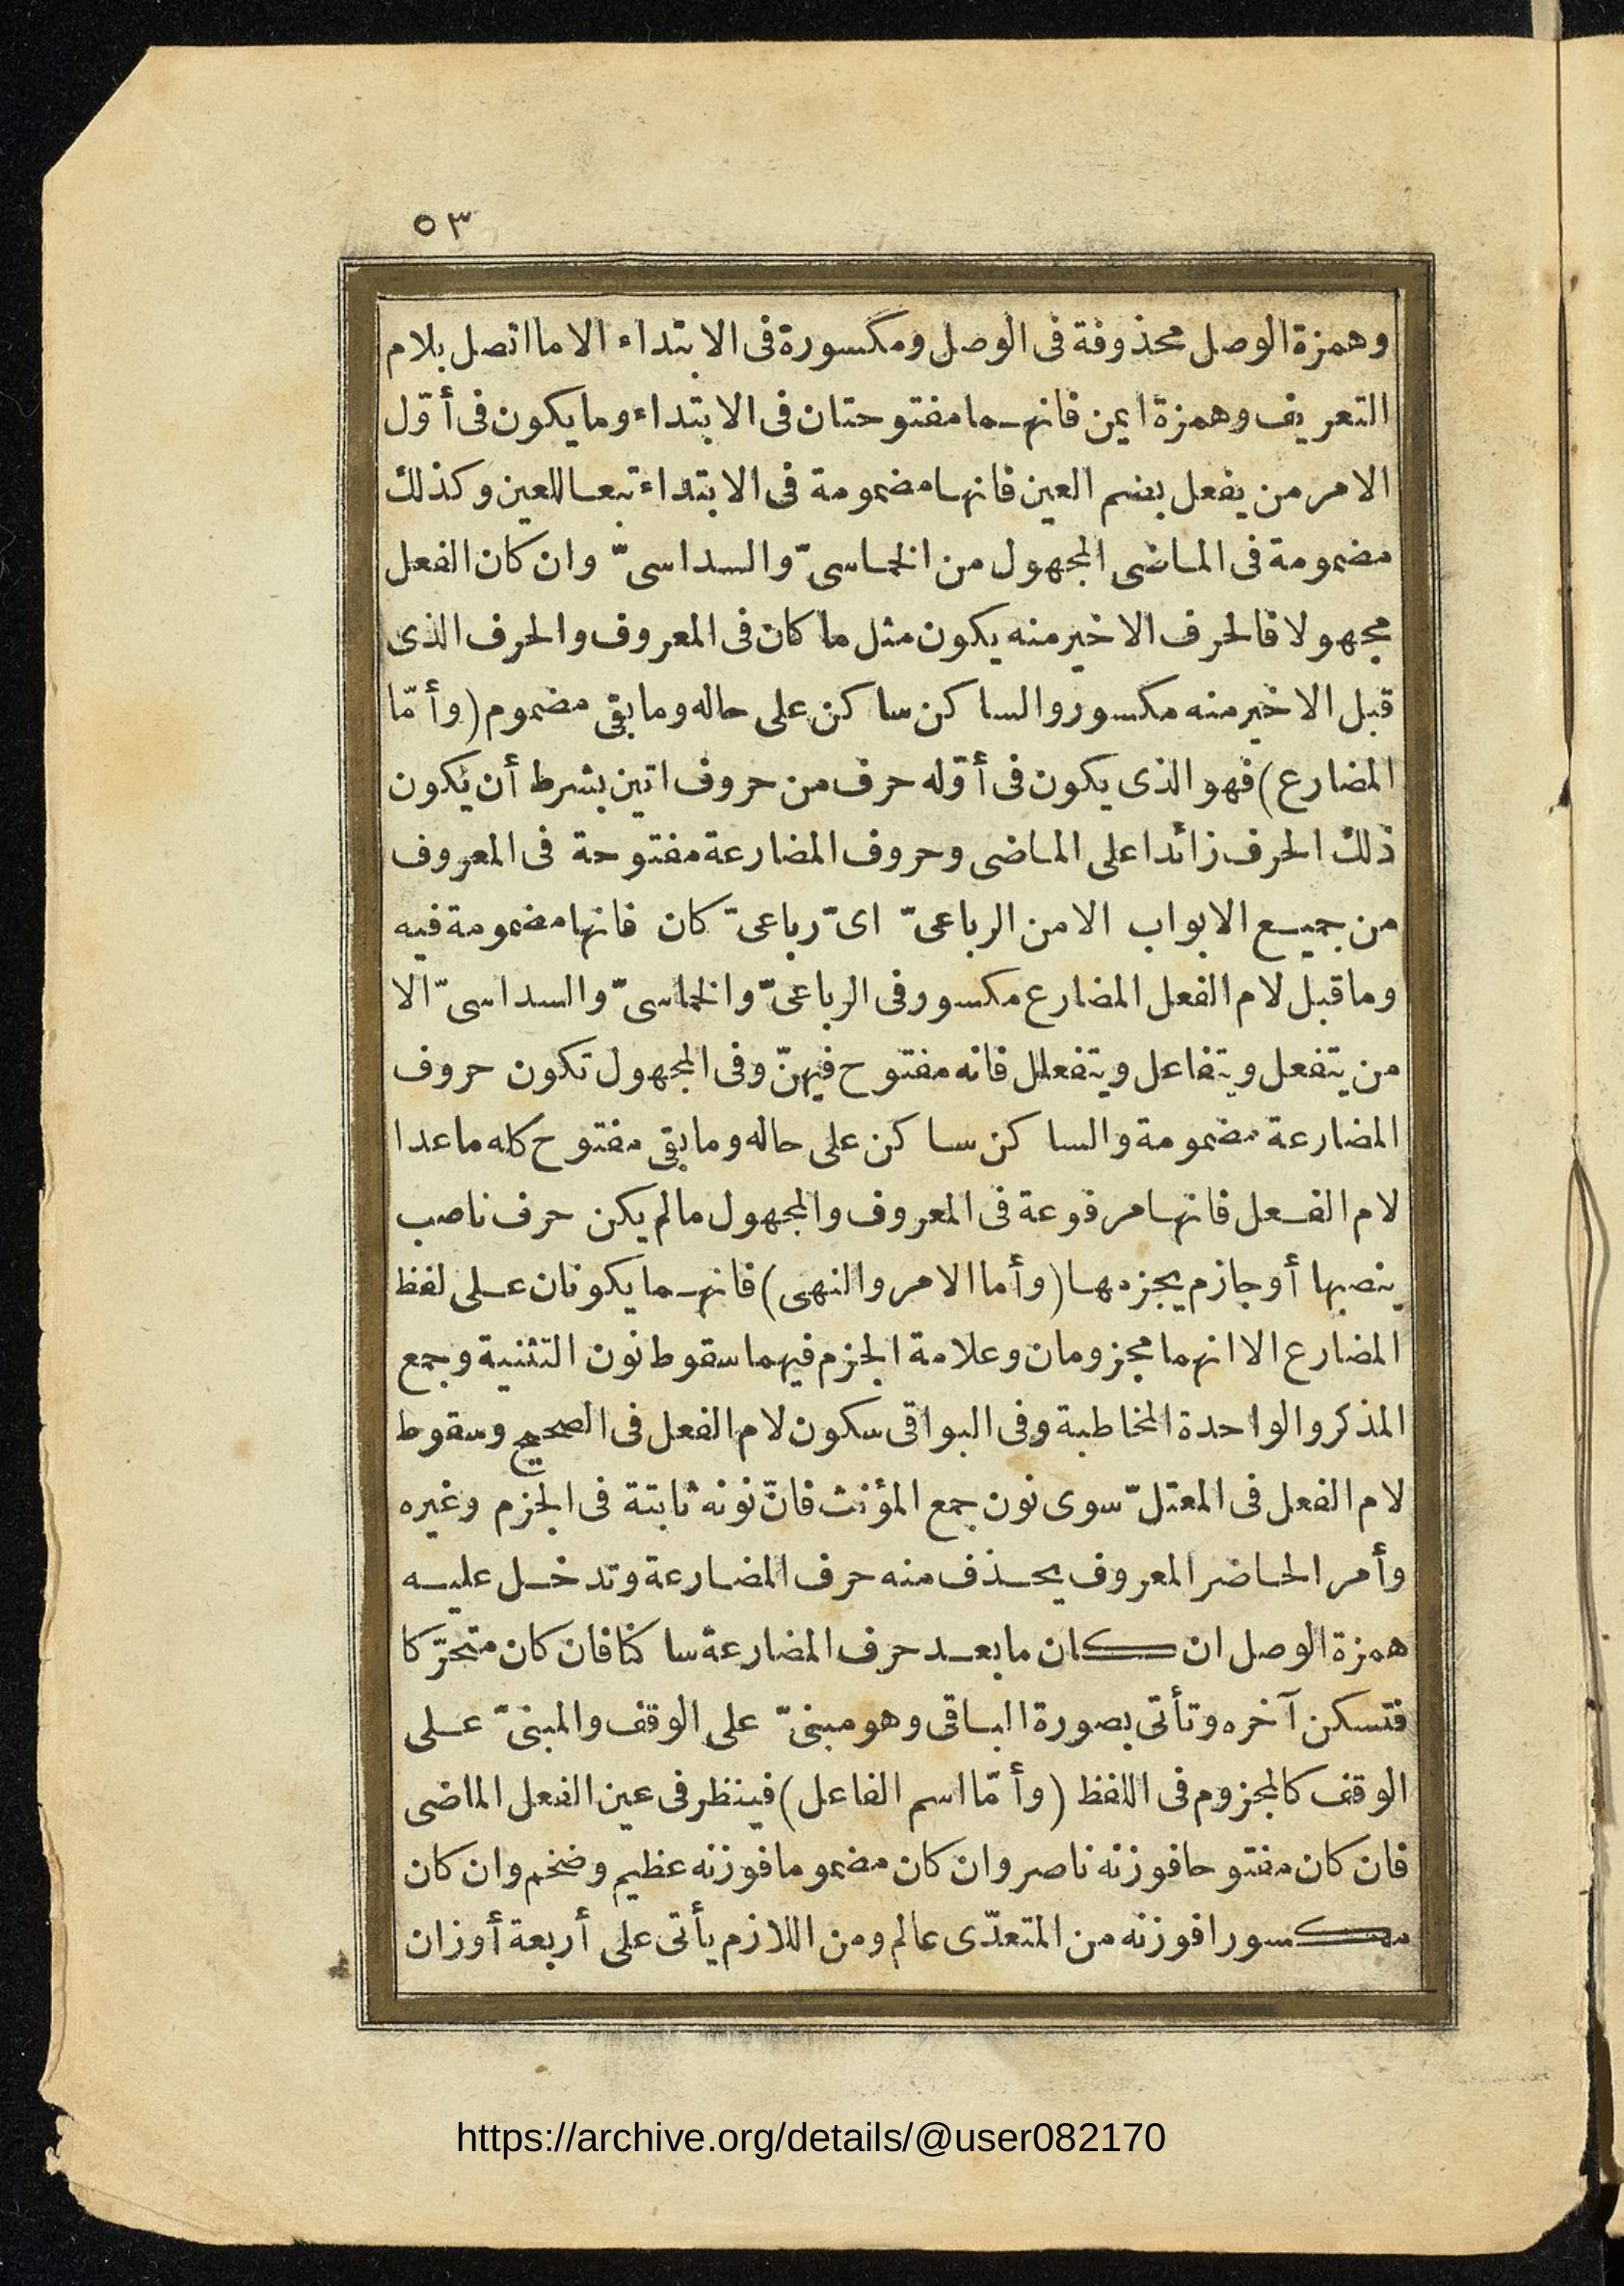 ٥٣
وهمزة الوصل محذوفة فى الوصل ومكسورة فى الابتداء الا ما اتصل بلام
التعريف وهمزة ايمن فانهما مفتوحتان فى الابتداء وما يكون فى أوّل
الامر من يفعل بضم العين فانها مضمومة فى الابتداء تبعا للعين وكذلك
مضمومة فى الماضى المجهول من الخماسىّ والسداسىّ وان كان الفعل
مجهولا فالحرف الاخير منه يكون مثل ما كان فى المعروف والحرف الذى
قبل الاخير منه مكسور والساكن ساكن على حاله وما بقى مضموم (وأمّا
المضارع) فهو الذى يكون فى أوّله حرف من حروف اتين بشرط أن يكون
ذلك الحرف زائدا على الماضى وحروف المضارعة مفتوحة فى المعروف
من جميع الابواب الا من الرباعىّ اىّ رباعىّ كان فانها مضمومة فيه
وما قبل لام الفعل المضارع مكسور فى الرباعىّ والخماسىّ والسداسىّ الا
من يتفعل ويتفاعل ويتفعلل فانه مفتوح فيهنّ وفى المجهول تكون حروف
المضارعة مضمومة والساكن ساكن على حاله وما بقى مفتوح كله ما عدا
لام الفعل فانها مرفوعة فى المعروف والمجهول مالم يكن حرف ناصب
ينصبها أو جازم يجزمها (وأما الامر والنهى) فانهما يكونان على لفظ
المضارع الا انهما مجزومان وعلامة الجزم فيهما سقوط نون التثنية وجمع
المذكر والواحدة المخاطبة وفى البواقى سكون لام الفعل فى الصحيح وسقوط
لام الفعل فى المعتلّ سوى نون جمع المؤنث فانّ نونه ثابتة فى الجزم وغيره
وأمر الحاضر المعروف يحذف منه حرف المضارعة وتدخل عليه
همزة الوصل ان كان ما بعد حرف المضارعة ساكنا فان كان متحرّكا
فتسكن آخره وتأتى بصورة الباقى وهو مبنىّ على الوقف والمبنىّ على
الوقف كالمجزوم فى اللفظ (وأمّا اسم الفاعل) فينظر فى عين الفعل الماضى
فان كان مفتوحا فوزنه ناصر وان كان مضموما فوزنه عظيم وضخم وان كان
مكسورا فوزنه من المتعدّى عالم ومن اللازم يأتى على أربعة أوزان
https://archive.org/details/@user082170